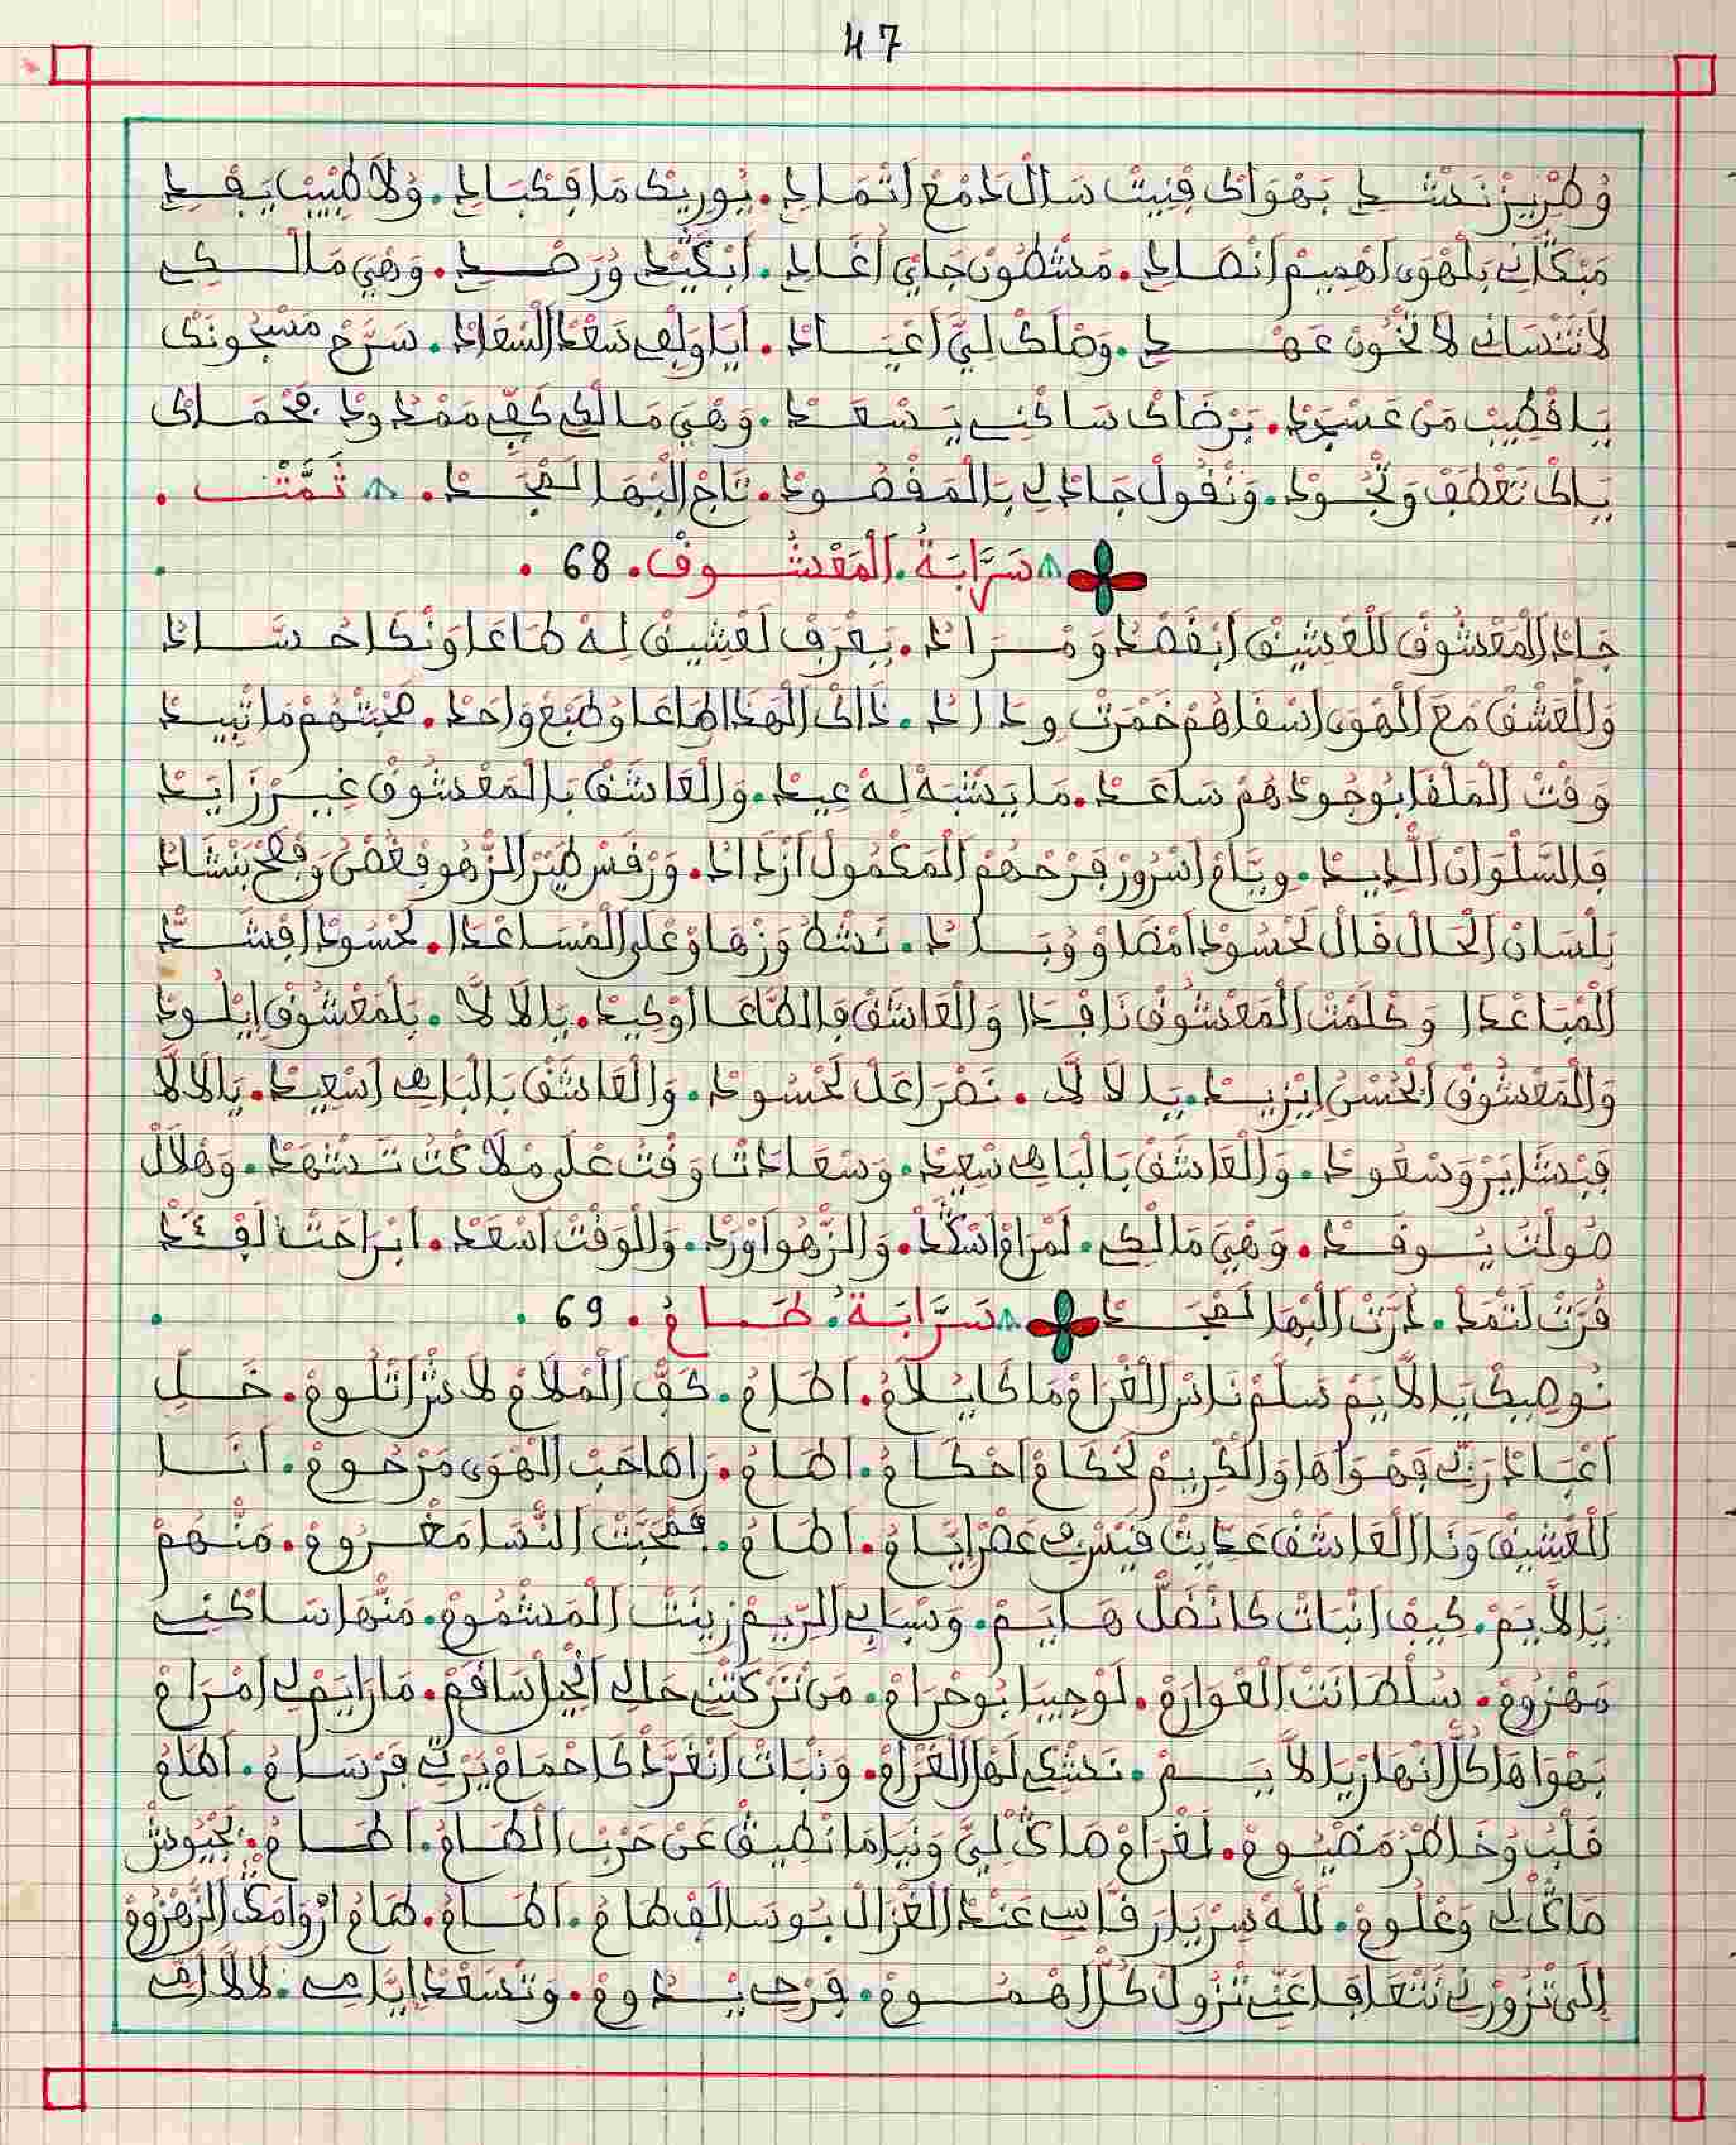 47
وُطْرِيزْ نَدْشَدِ بَهْوَاكْ فْنِيتْ سَالْ دَمْعْ اثْمَادِ. نُورِيكْ مَا فِكْبَادِ. وُلَا طْبِيبْ يَفْدِ
مَبْكَانِي بَلْهْوَى اهْمِيمْ انْصَادِ. مَشْطُونْ جَايْ اغَادِ. ابْكَيْدِ وُرَصْدِ. وَهْيَ مَالْكِي
لَا تَنْسَانِي لَا تْخُونْ عَهْدِ. وَصْلَكْ لِيَّ اعْيَادْ. أَيَا وَلْفِي سَعْدْ السْعَادْ. سَرَّحْ مَسْجُونَكْ
يَا قْطِيبْ مَنْ عَسْجَدْ. بَرْضَاكْ سَاكْنِي يَسْعَدْ. وَهْيَ مَالْكِي كَفِّي مَمْدُودْ فَحْمَاكْ
يَاكْ تَعْطَفْ وَتْجُودْ. وَنْقُولْ جَادْ لِي بَالْمَقْصُودْ. تَاجْ الْبْهَا لَمْجَدْ. ثَمَّتْ.
سَرَّابَةُ. الْمَعْشُوقْ. 68.
جَادْ الْمَعْشُوقْ لَلْعْشِيقْ ابْقَصْدْ وَمْرَادْ. بِعْرَفْ لَعْشِيقْ لِهْ طَاعَا وَنْكَا حُسَّادْ
وَالْعَشْقْ مَعَ الْهْوَى اسْقَاهُمْ خَمْرَتْ وِدَادْ. ذَاكْ الْهَذَا اطَاعَا وُطْبَعْ وَاحَدْ. مْحَبَّتْهُمْ مَا تْبِيدْ
وَقْتْ الْمَلْقَا بُوجُودْهُمْ سَاعَدْ. مَا يَشْبَهْ لِهْ عِيدْ. وَالْعَاشَقْ بَالْمَعْشُوقْ غِيرْ زَايَدْ
فَالسَّلْوَانْ الْدِيدْ. وِيَّامْ اسْرُورْ فَرْحْهُمْ الْمَكْمُولْ ازْدَادْ. وَرْقَسْ طَيْرْ الزْهُو فْغْصْنُ وَفْصَحْ بَنْشَادْ
بَلْسَانْ الْحَالْ قَالْ لَحْسُودْ امْضَاوْ وُبَادْ. نَشْطْ وَزْهَاوْ عْلَى الْمْسَاعْدَا. لَحْسُودْ افْشَدّْ
الْمْبَاعْدَا وَكْلَمْتْ الْمَعْشُوقْ نَافْدَا وَالْعَاشَقْ فَالطَّاعَا اوْكِيدْ. يَالَا لَا. بَلْمَعْشُوقْ ايْلُودْ
وَالْمَعْشُوقْ الْحُسْنُ ايْزِيدْ. يَا لَا لَا. نَصْرَا عَلْ لَحْسُودْ. وَالْعَاشَقْ بَالْبَاهِي اسْعِيدْ. يَالَالَا
فَبْشَايَرْ وَسْعُودْ. وَالْعَاشَقْ بَالْبَاهِي سْعِيدْ. وَسْعَادَتْ وَقْتْ عْلَى مْلَاكْتْ تَشْهَدْ. وَهْلَالْ
صُولْتُ يُوقَدْ. وَهْيَ مَالْكِي. لَمْرَامْ اسْكَدْ. وَالزَّهُو اوْرَدْ. وَالْوَقْتْ اسْعَدْ. ابْرَاحَتْ لَفْئَدْ
قُرَّتْ لَثْمَدْ. دُرَّتْ الْبْهَا لَمْجَدْ سَرَّابَةُ. طَامُ. 69.
نُوصِيكْ يَا لَايَمْ سَلَّمْ نَاسْ الْغْرَامْ مَا كَا يُلَامُ. اطَامُ. كَفّْ الْمْلَامْ لَاشْ اتْلُومْ. خَلِّ
اعْبَادْ رَبِّي فَهْوَاهَا وَالْكْرِيمْ لَحْكَامْ احْكَامُ. اطَامُ. رَاهَا حَبْ الْهْوَى مَرْحُومْ. انَا
الْعْشِيقْ وَنَا الْعَاشَقْ عَدِّيتْ قَيْسْ فِي عَصْرْ ايَّامُ. اطَامُ. فَمْحَبَّتْ النّْسَا مَغْرُومْ. مَنْهُمْ
يَالَايَمْ. كِيفْ انْبَاتْ كَانْضَلّْ هَايَمْ. وَسْبَابِي الرِّيمْ زِينَتْ الْمَشْمُومْ. مَنْهَا سَاكْنِي
مَهْزُومْ. سُلْطَانَتْ الْعْوَارَمْ. لَوْجِيبَا بُوحْرَامْ. مَنْ تَرْكَتْنِي حَالِي انْحِيلْ سَاقَمْ. مَارَايَمْ لِي امْرَامْ
بَهْوَاهَا كُلّْ انْهَارْ يَا لَايَمْ. نَشْكِي لَهَا الْغْرَامْ. وَنْبَاتْ انْغَرَّدْ كَاحْمَامْ بَرِّي فَرْسَامُ. اطَامُ
قَلْبْ وُخَاطْرْ مَضْيُومْ. لَغْرَامْ صَاكْ لِيَّ وَنْيَا مَا نْطِيقْ عَنْ حَرْبْ الْطَامُ. اطَامُ. بَجْيُوشْ
صَاكْ لِي وَعْلُومْ. لَلَّهْ سِرْ يَا رَقَّاسِي عَنْدْ الْغْزَالْ بُوسَالْفْ طَامُ. اطَامُ. طَامُ ازْوَامَكْ الزَّهْزُومْ
إلَى تْزُورْنِي نَتْعَافَا عَنِّي تْزُولْ كُلّْ اهْمُومْ. فَرْحِي يْدُومْ. وَتْسَعْدْ ايَّامِي. لَالَا امِّي